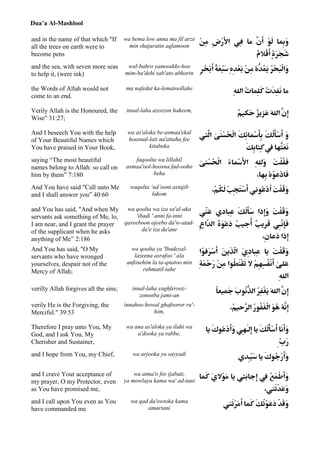 Dua'a Al-Mashlool
and in the name of that which "If
all the trees on earth were to
become pens
wa bema low anna ma fil arze
min shajaratin aqlamoon
وَبِما لَوْ اَنَّ ما فِي الأَرْضِ مِنْ
شَجَرَةٍ أَقْلامٌ
and the sea, with seven more seas
to help it, (were ink)
wal-bahro yamouddo-hoo
mim-ba'dehi sab'ato abhorin
وَالْبَحْرُ يَمُدُّهُ مِنْ بَعْدِهِ سَبْعَةُ أَبْحُرٍ
the Words of Allah would not
come to an end.
ma nafedat ka-lematoollahe
ما نَفِدَتْ كَلِماتُ اللهِ
Verily Allah is the Honoured, the
Wise" 31:27;
innal-laha azeezon hakeem,
إِنَّ اللهَ عَزِيزٌ حَكِيمٌ
And I beseech You with the help
of Your Beautiful Names which
You have praised in Your Book,
wa as'aloka be-asmaa'ekal
hoosnal-lati na'attaha fee
kitabeka
وَ أَسْأَلُكَ بِأَسْمائِكَ الْحُسْنَى الَّتي
نَعَتَّها فِي كِتابِكَ
saying “The most beautiful
names belong to Allah: so call on
him by them” 7:180
faqoolta wa lillahil
asmaa'ool-hoosna fad-ooho
beha
فَقُلْتَ وَللهِ الأَسْماءُ الْحُسْنَى
فَادْعُوهُ بِها،
And You have said "Call unto Me
and I shall answer you” 40:60
waqulta 'ud'ooni astajib
lakom
وَقُلْتَ اُدْعُوني أَسْتَجِبْ لَكُمْ،
and You has said, "And when My
servants ask something of Me, lo,
I am near, and I grant the prayer
of the supplicant when he asks
anything of Me” 2:186
wa qoolta wa iza sa'al-aka
'ibadi 'anni fa-inni
qareeboon ojeebo da'w-atud-
da'e iza da'ane
وَقُلْتَ وَإِذا سَأَلَكَ عِبادِي عَنّي
فَإِنّي قَرِيبٌ أُجِيبُ دَعْوَةَ الدّاعِ
إِذا دَعانِ،
And You has said, "O My
servants who have wronged
yourselves, despair not of the
Mercy of Allah;
wa qoolta ya 'Ibadeyal-
lazeena asrafoo 'ala
anfosehim la ta-qnatoo min
rahmatil-lahe
وَقُلْتَ يا عِبادِيَ الَّذينَ أَسْرَفُوا
عَلَىٰ أَنْفُسِهِمْ لا تَقْنَطُوا مِنْ رَحْمَةِ
اللهِ
verily Allah forgives all the sins;
innal-laha yaghferooz-
zonooba jami-an
إِنَّ اللهَ يَغْفِرُ الذُّنُوبَ جَمِيعاً
verily He is the Forgiving, the
Merciful." 39:53
innahoo howal ghafooror ra'-
him,
إِنَّهُ هُوَ الْغَفُورُ الرَّحيمُ،
Therefore I pray unto You, My
God, and I ask You, My
Cherisher and Sustainer,
wa ana as'aloka ya ilahi wa
a'dooka ya rabbe,
وَأَنَا أَسْأَلُكَ يا إِلـهِي وَأَدْعُوكَ يا
رَبِّ
and I hope from You, my Chief,
wa arjooka ya sayyadi
وَأَرْجُوكَ يا سَيِّدِي
and I crave Your acceptance of
my prayer, O my Protector, even
as You have promised me,
wa atma'o fee ijabati,
ya mowlaya kama wa' ad-tani
وَأَطْمَعُ فِي إِجابَتِي يا مَوْلايَ كَما
وَعَدْتَني،
and I call upon You even as You
have commanded me
wa qad da'owtoka kama
amartani
وَقَدْ دَعَوْتُكَ كَما أَمَرْتَني